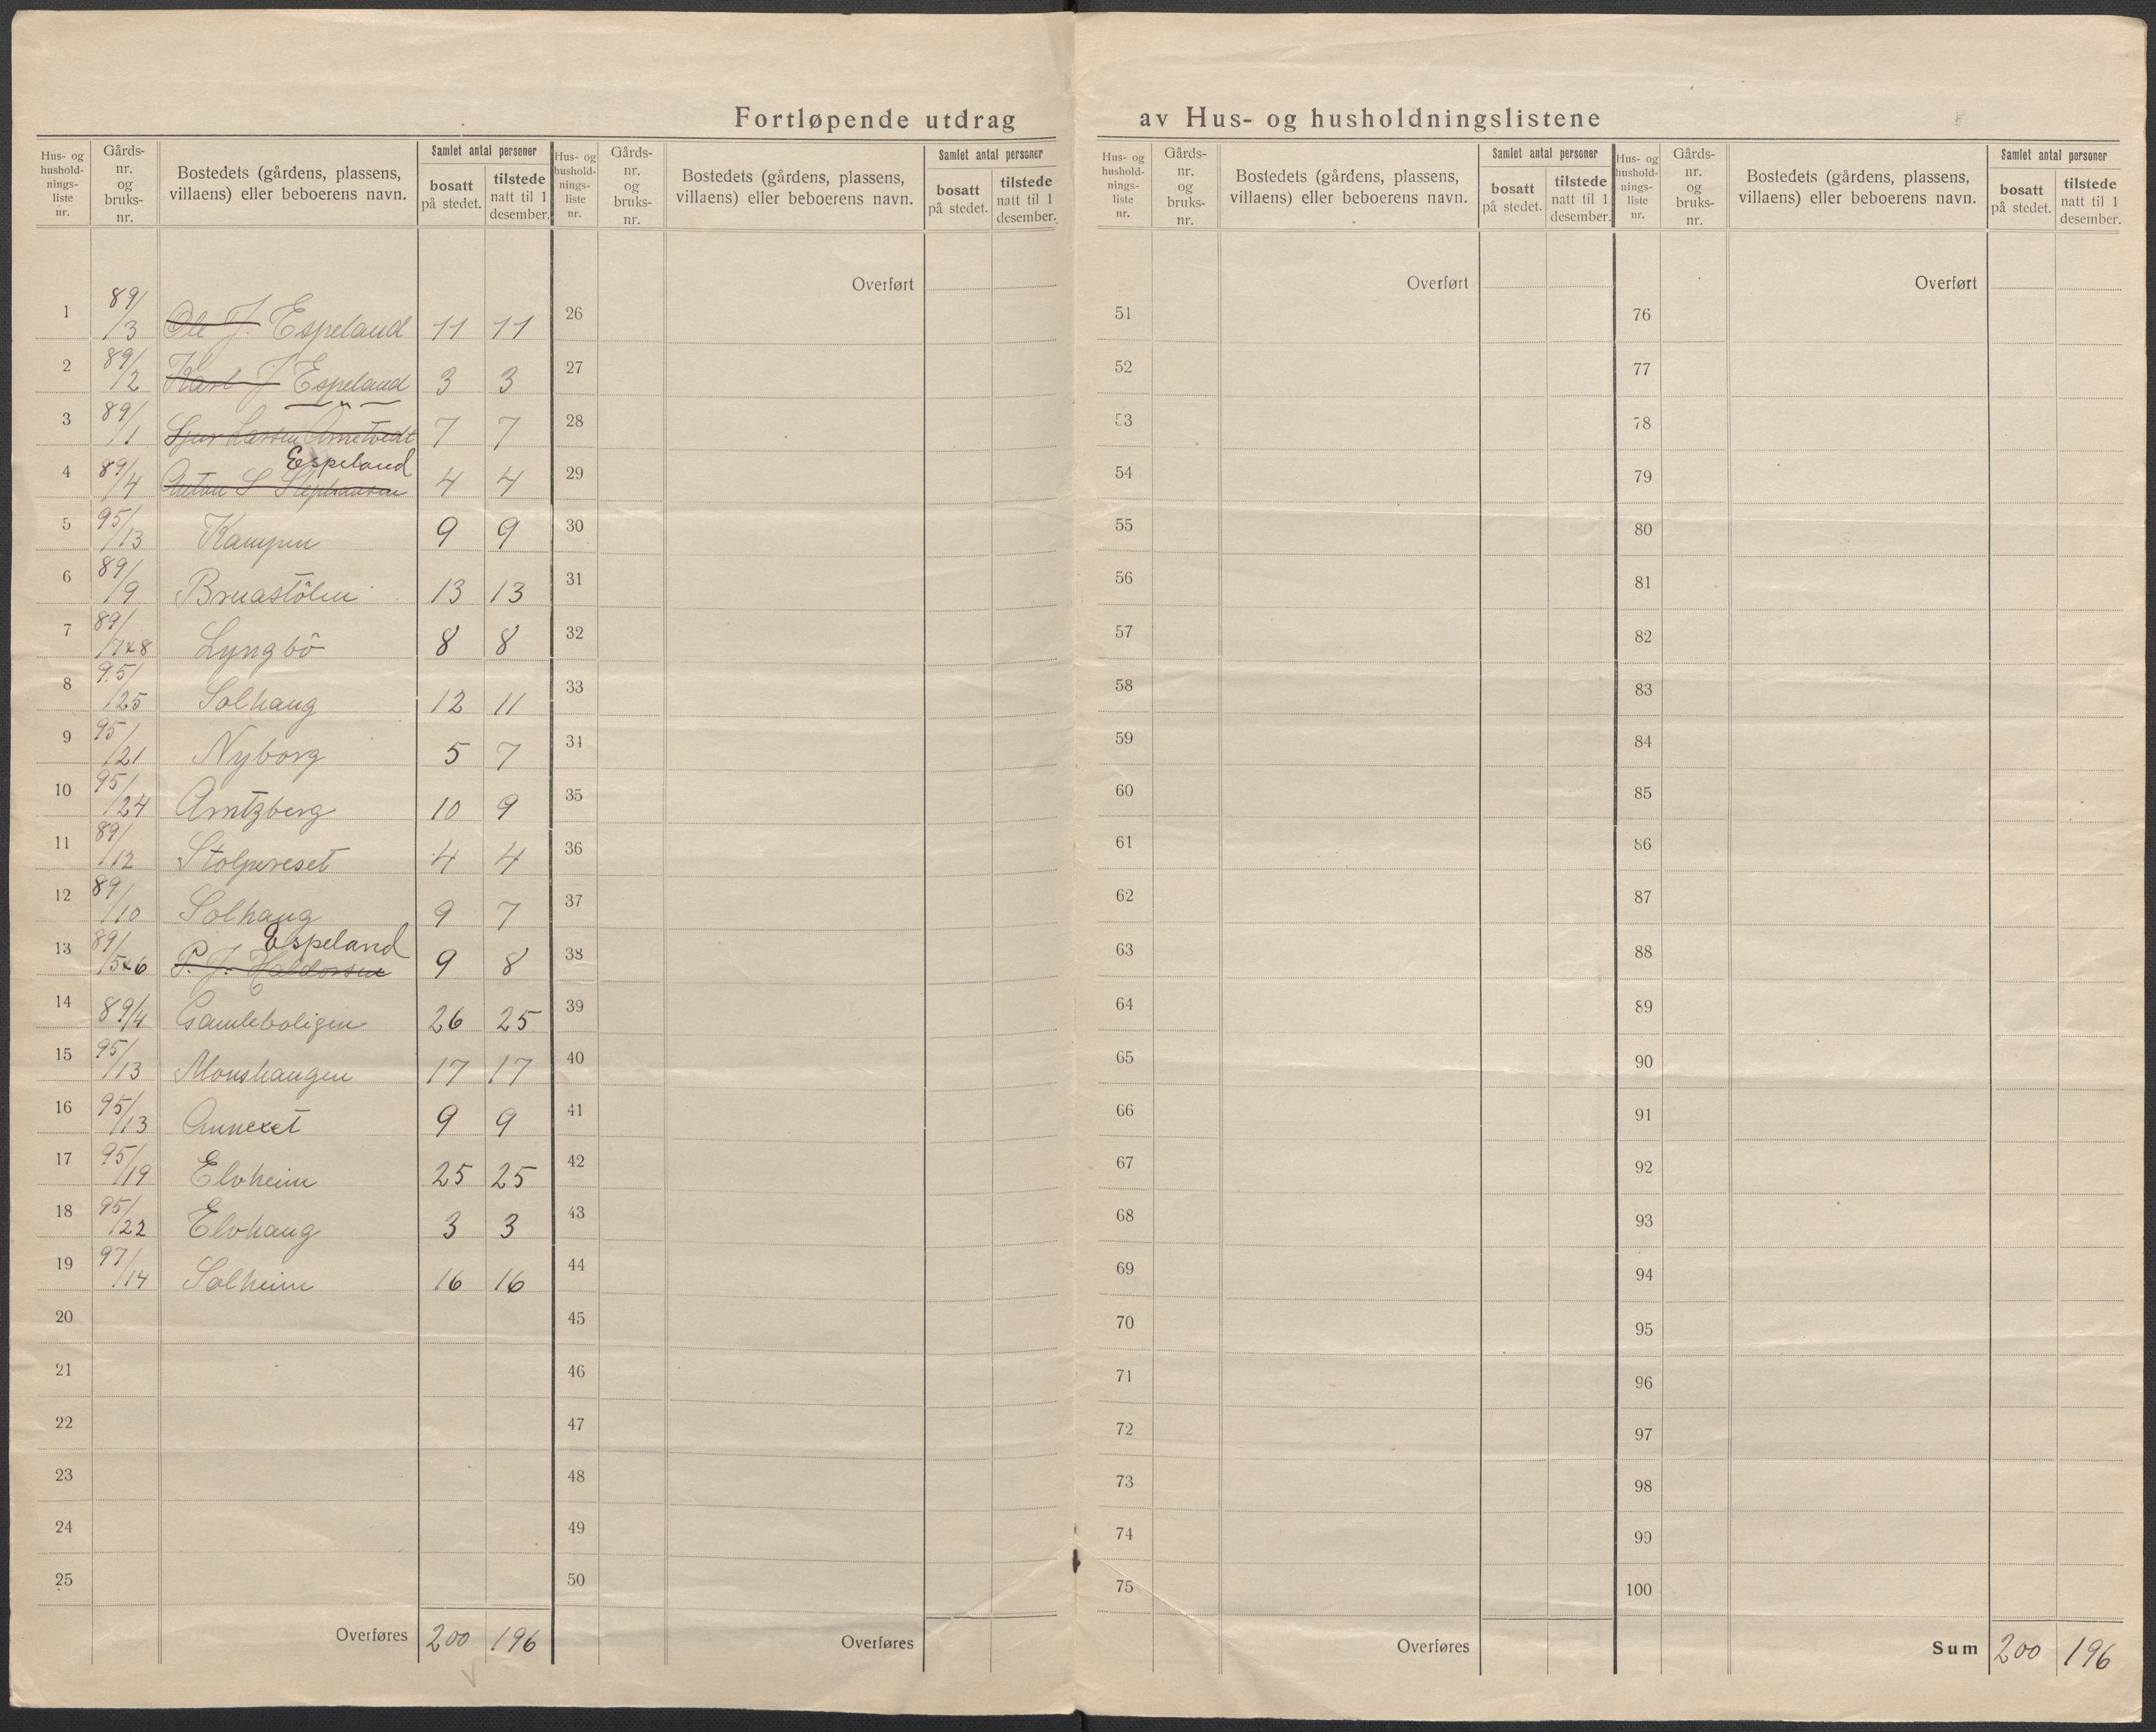 Fortløpende utdrag av Hus- og husholdningslistene
Hus- og husholdnings-liste nr. Gårds-nr. og bruks-nr. Bostedets (gårdens, plassens, villaens) eller beboerens navn. Samlet antal personer bosatt på stedet. tilstede natt til 1 desember.
Hus- og husholdnings-liste nr. Gårds-nr. og bruks-nr. Bostedets (gårdens, plassens, villaens) eller beboerens navn. Samlet antal personer bosatt på stedet. tilstede natt til 1 desember.
Hus- og husholdnings-liste nr. Gårds-nr. og bruks-nr. Bostedets (gårdens, plassens, villaens) eller beboerens navn. Samlet antal personer bosatt på stedet. tilstede natt til 1 desember.
Hus- og husholdnings-liste nr. Gårds-nr. og bruks-nr. Bostedets (gårdens, plassens, villaens) eller beboerens navn. Samlet antal personer bosatt på stedet. tilstede natt til 1 desember.
Overført Overført Overført
1 89/3 Ole J. Espeland 11 11 26 51 76
2 89/2 Karl J Espeland 3 3 27 52 77
— " —
3 89/1 Sjur Larsen Arnetvedt 7 7 28 53 78
Espeland
4 89/4 Anton S Stephansen 4 4 29 54 79
5 95/13 Kampen 9 9 30 55 80
6 89/9 Bruastölen 13 13 31 56 81
7 89/7 & 8 Lyngbö 8 8 32 57 82
8 95/25 Solhaug 12 11 33 58 83
9 95/21 Nyborg 5 7 34 59 84
10 95/24 Arntzberg 10 9 35 60 85
11 89/12 Stolpereset 4 4 36 61 86
12 89/10 Solhaug 9 7 37 62 87
Espeland
13 89/5 & 6 P. J. Haldorsen 9 8 38 63 88
14 89/4 Gamleboligen 26 25 39 64 89
15 95/13 Monshaugen 17 17 40 65 90
16 95/13 Annexet 9 9 41 66 91
17 95/19 Elvheim 25 25 42 67 92
18 95/22 Elvhaug 3 3 43 68 93
19 97/14 Solheim 16 16 44 69 94
20 45 70 95
21 46 71 96
22 47 72 97
23 48 73 98
24 49 74 99
25 50 75 100
Overføres 200 196 Overføres Overføres Sum 200 196